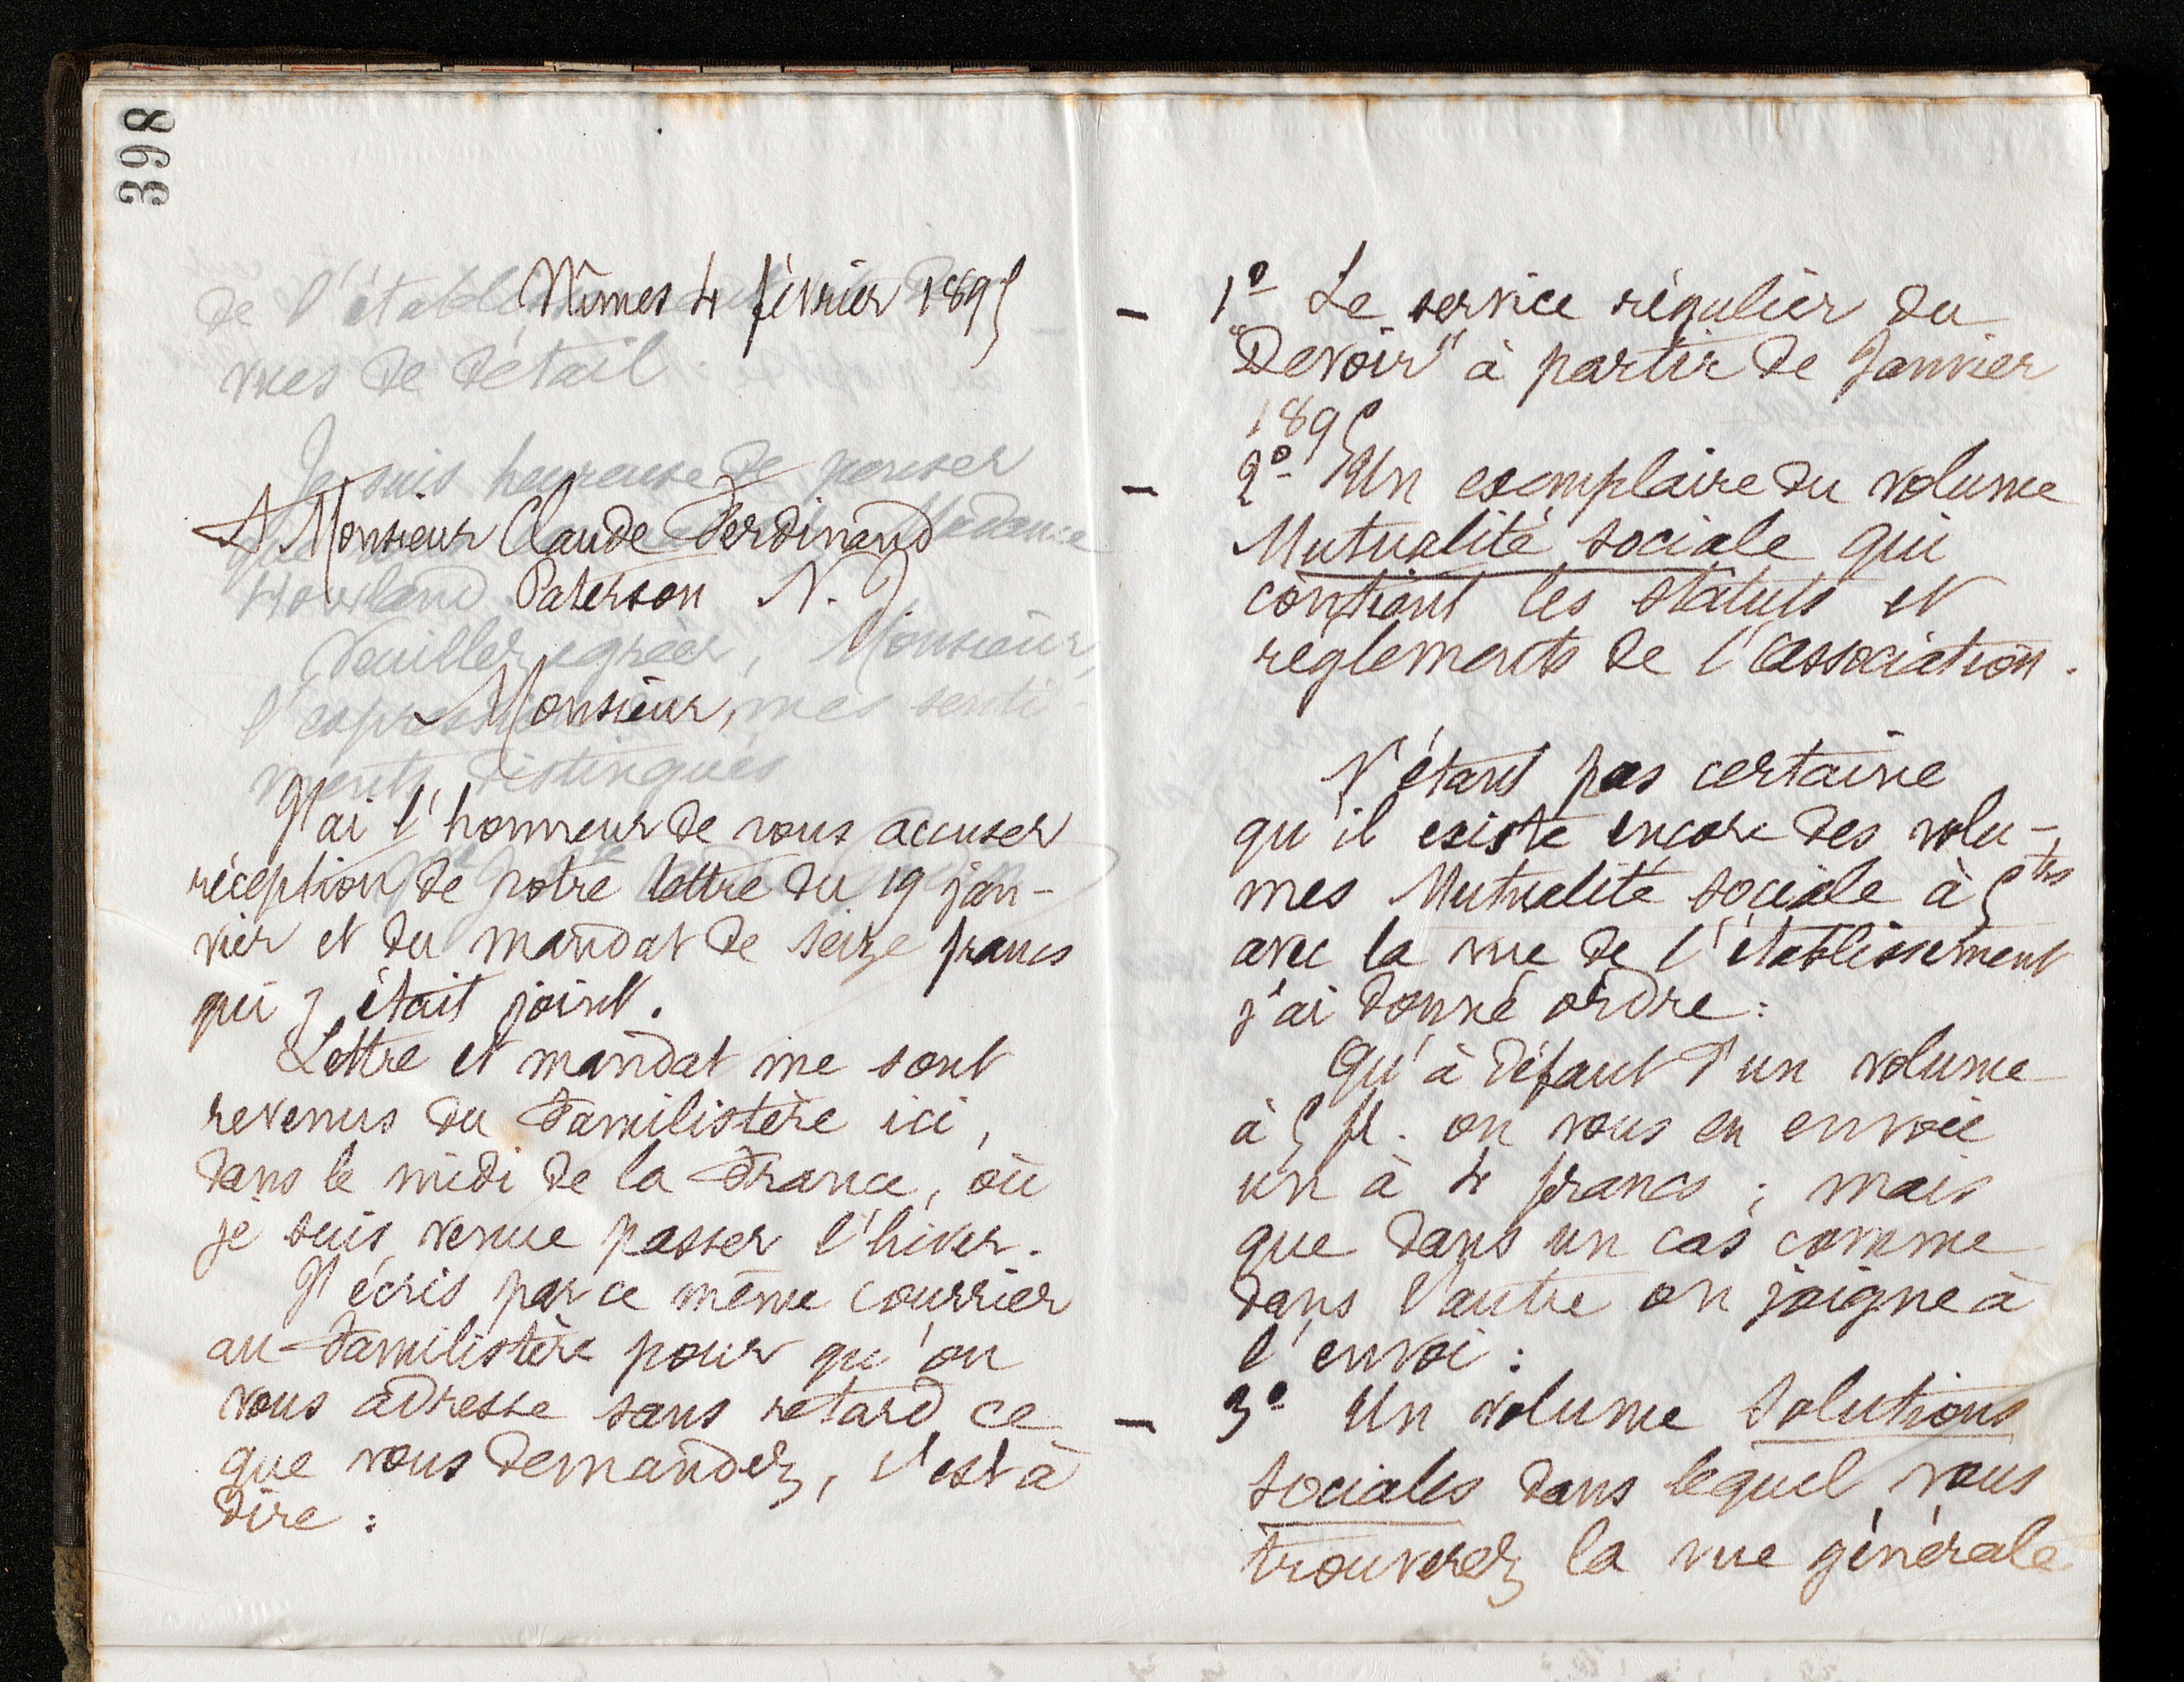 398
Nîmes 4 février 1895
A Monsieur Claude Ferdinand
Paterson N. J.
Monsieur,
J'ai l'honneur de vous accuser
réception de votre lettre du 19 jan-
vier et du mandat de seize francs
qui y était joint.
Lettre et mandat me sont
revenus du Familistère ici,
dans le midi de la France, où
je suis venue passer l'hiver.
J'écris par ce même courrier
au Familistère pour qu'on
vous adresse sans retard ce
que vous demandez, c'est à
dire :
de l'établ
vues de détail :
Je suis heureuse de penser
que Madame
Howland
Veuillez agréer, Monsieur,
l'expression mes senti-
ments distingués
- 1º Le service régulier du
"Devoir" à partir de Janvier
1895
- 2º Un exemplaire du volume
Mutualité sociale qui
contient les statuts et
règlements de l'association.
N'étant pas certaine
qu'il existe encore des volu-
mes Mutualité sociale à 5 frs
avec la vue de l'établissement
j'ai donné ordre :
Qu'à défaut d'un volume
à 5 fr. on vous en envoie
un à 4 francs ; mais
que dans un cas comme
dans l'autre on joigne à
l'envoi :
- 3º Un volume Solutions
sociales dans lequel vous
trouverez la vue générale